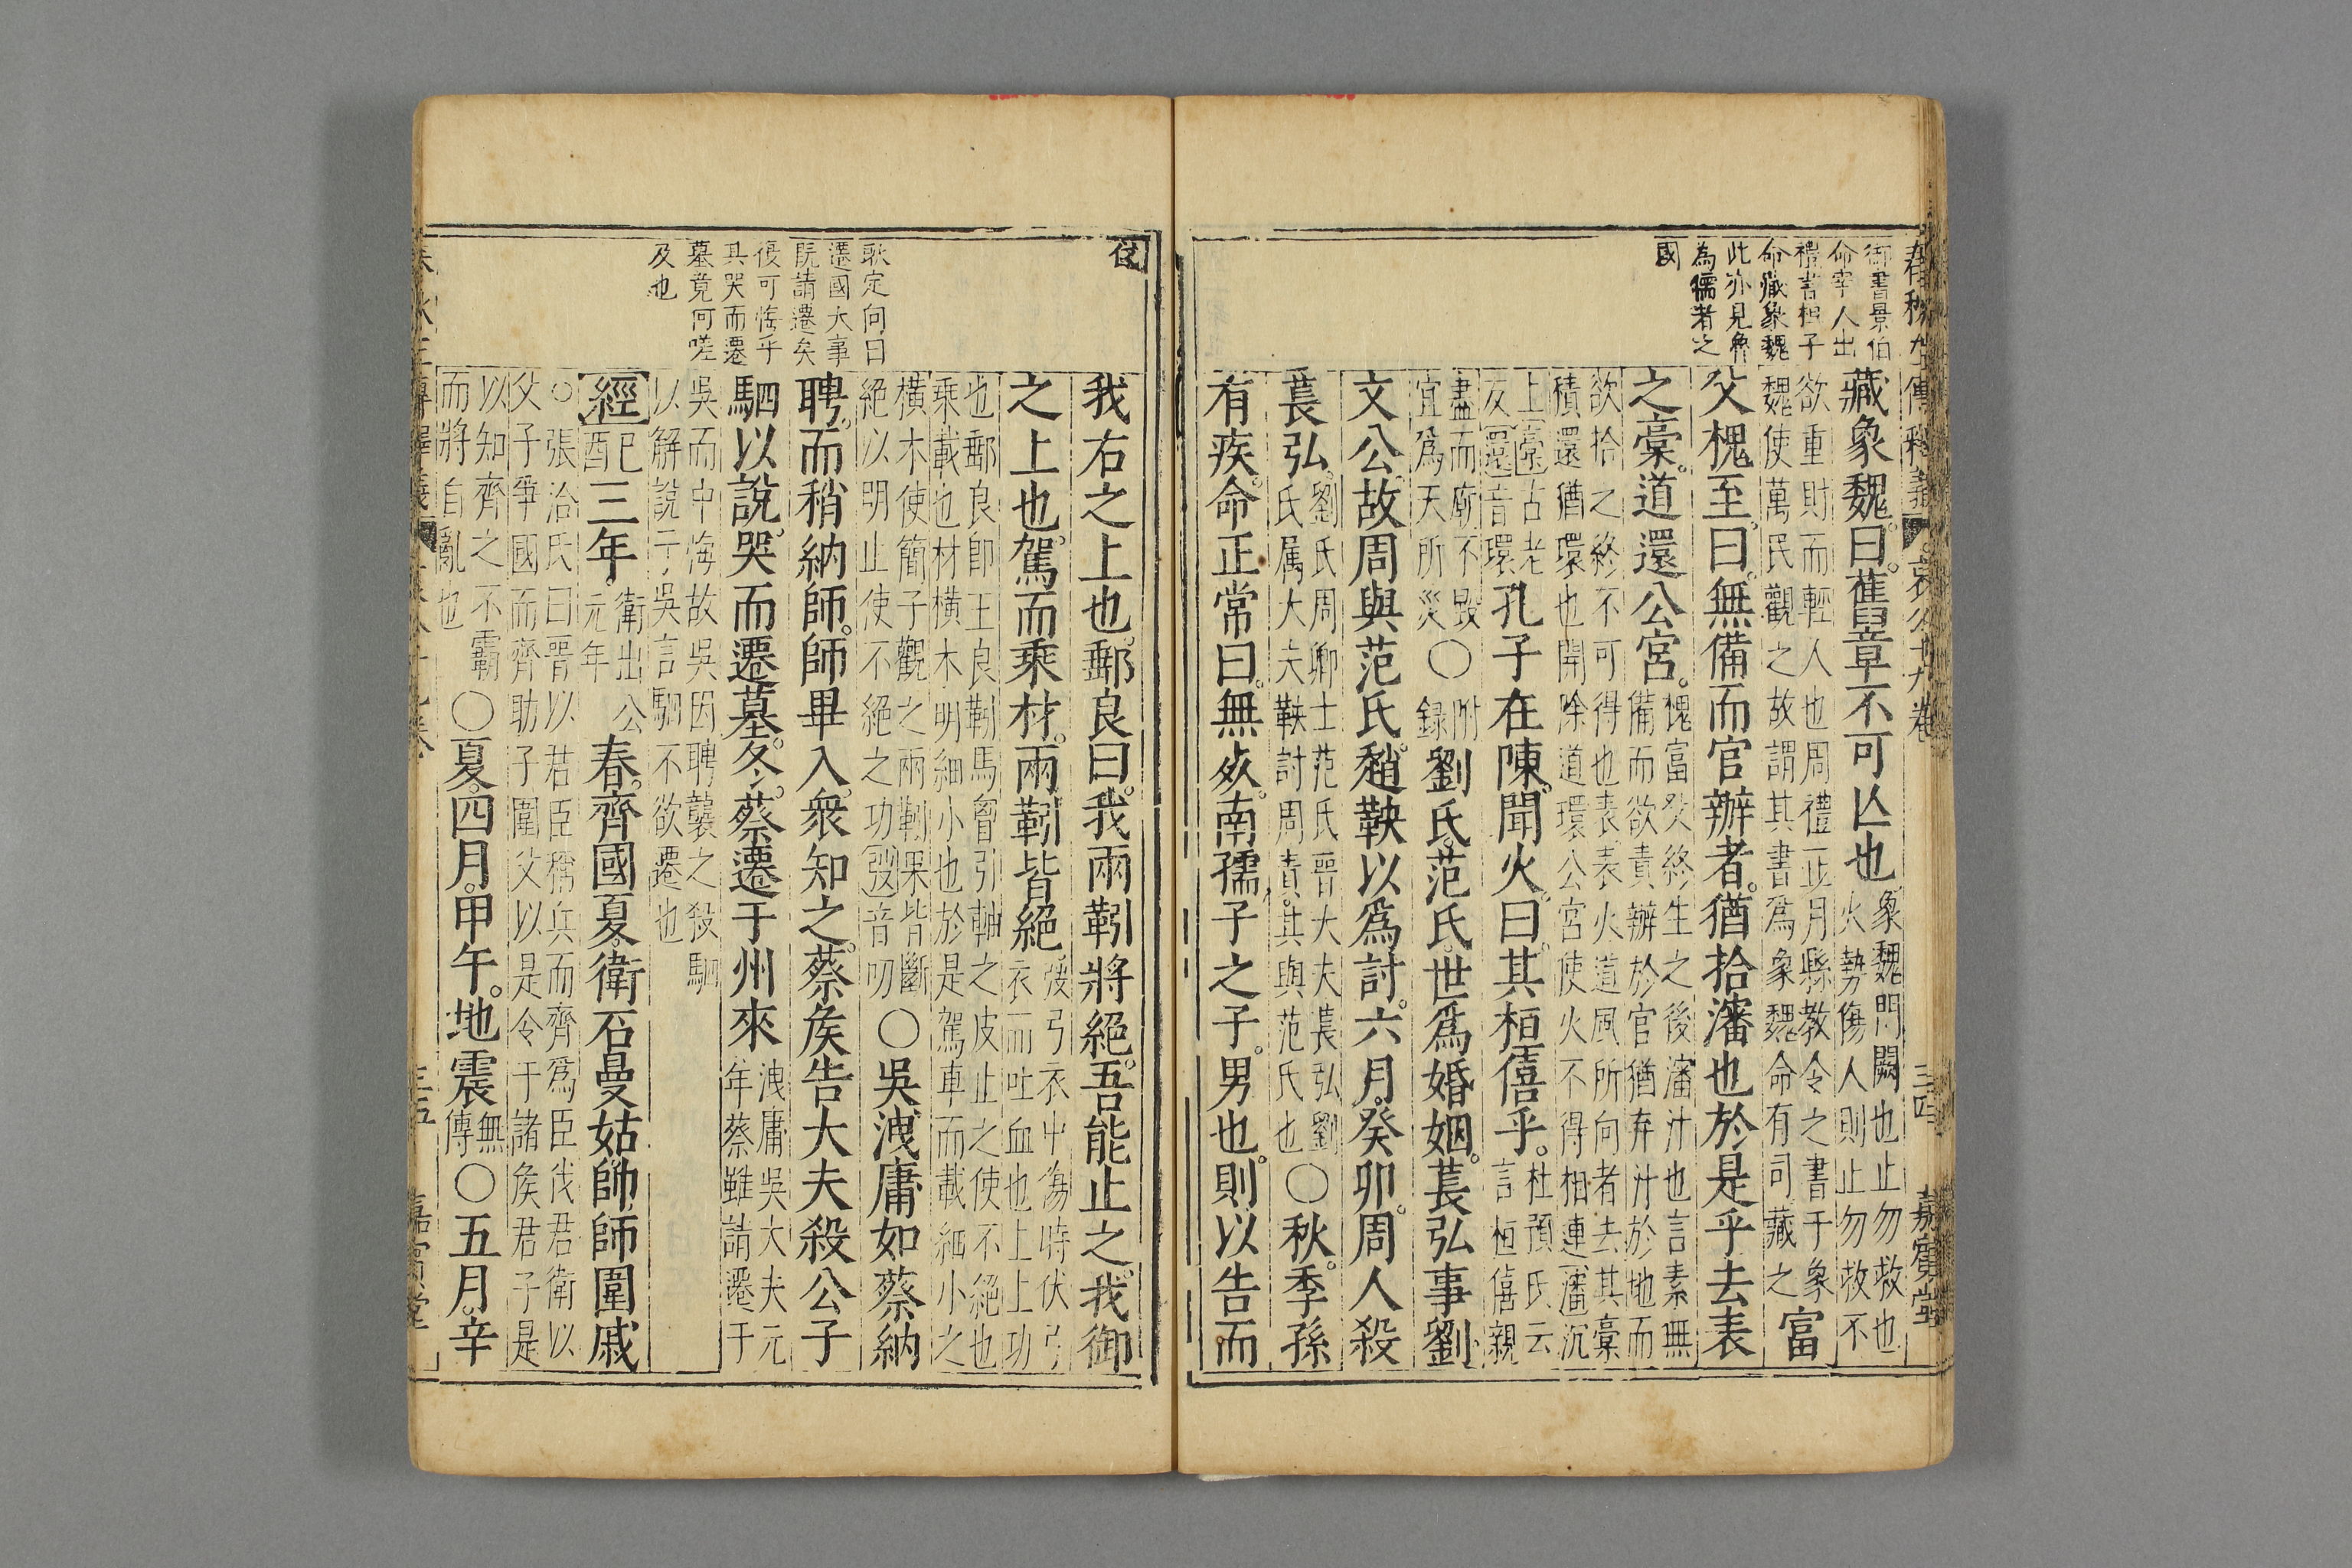 御書景伯
命宰人出
禮書桓子
命藏象魏
此亦見魯
為儒者之
國
藏象魏曰舊章不可亾也
象魏門闕也止勿救也
火勢傷人則止勿救不
欲重財而輕人也周禮正月縣教令之書于象
魏使萬民觀之故謂其書爲象魏命有司藏之
富
父槐至曰無備而官辦者猶拾瀋也於是乎去表
之槀道還公宮
槐富父終生之後瀋汁也言素無
備而欲責辦於官猶弃汁於地而
欲拾之終不可得也表表火道風所向者去其槀
積還猶環也開除道環公宮使火不得相連瀋沉
上槀古老
反還音環
孔子在陳聞火曰其桓僖乎
杜預氏云
言桓僖親
盡而廟不毀
宜爲天所災
〇
附
録
劉氏范氏世爲婚姻萇弘事劉
文公故周與范氏趙鞅以爲討六月癸卯周人殺
萇弘
劉氏周卿士范氏晉大夫萇弘劉
氏属大夫鞅討周責其與范氏也
〇秋季孫
有疾命正常曰無死南孺子之子男也則以告而
春秋左傳釋義
哀公十九卷
三四
嘉賓堂
耿定向曰
遷國大事
旣請遷矣
復可悔乎
其哭而遷
墓竟何嗟
及也
我右之上也郵良曰我兩靷將絕吾能止之我御
之上也駕而乘材兩靷皆絕
弢弓衣中傷時伏弓
衣而吐血也上上功
也郵良卽王良靷馬胷引軸之皮止之使不絕也
乘載也材橫木明細小也於是駕車而載細小之
橫木使簡子觀之兩靷果皆斷
絕以明止使不絕之功靷音叨
〇吳洩庸如蔡納
聘而稍納師師畢入衆知之蔡矦告大夫殺公子
駟以說哭而遷墓冬蔡遷于州來
洩庸吳大夫元
年蔡雖請遷于
吳而中悔故吳因聘襲之殺駟
以解說于吳言駟不欲遷也
經
己
酉
三年
衛出公
元年
春齊國夏衛石曼姑帥師圍戚
〇張洽氏曰晉以君臣稱兵而齊爲臣伐君衛以
父子爭國而齊助子圍父以是令于諸矦君子是
以知齊之不霸
而將自亂也
〇夏四月甲午地震
無
傳
〇五月辛
三五